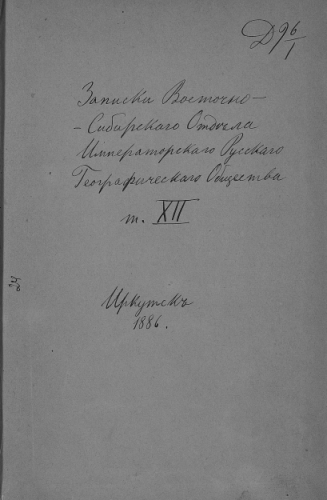 Д 96/1
Записки Восточно-
-Сибирскаго Отдѣла
Императорскаго Русскаго
Географическаго Общества
т. XII
Иркутскъ
1886.